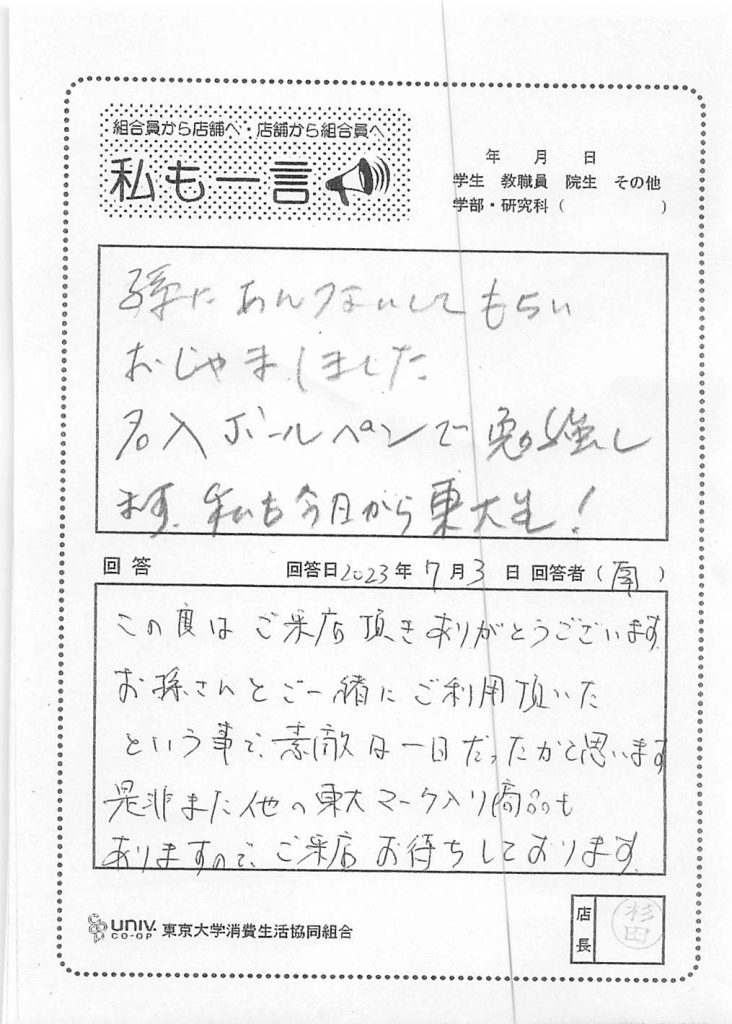 組合員から店舗へ・店舗から組合員へ
私も一言
年 月 日
学生 教職員 院生 その他
学部・研究科( )
孫にあんないしてもらい
おじゃましました
名入ボールペンで勉強し
ます。私も今日から東大生!
回答 回答日2023年7月3日 回答者( )
この度はご来店頂きありがとうございます。
お孫さんとご一緒にご利用頂いた
という事で、素敵な一日だったかと思います
是非また他の東大マーク入り商品も
ありますので、ご来店お待ちしております。
UNIV. CO-OP 東京大学消費生活協同組合
店長 杉田